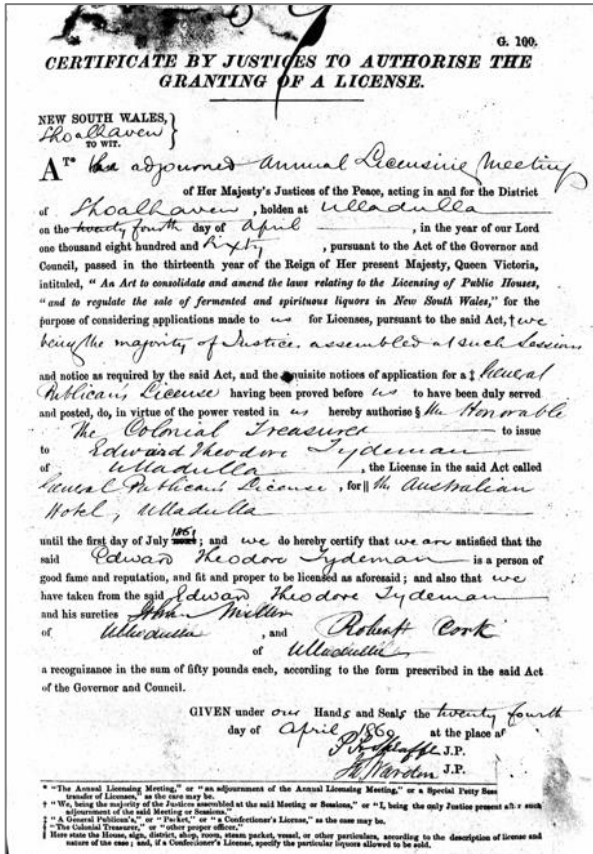 G. 100.
CERTIFICATE BY JUSTICES TO AUTHORISE THE
GRANTING OF A LICENSE.
NEW SOUTH WALES,
Shoalhaven
TO WIT.
AT* the adjourned Annual Licensing Meeting
of Her Majesty's Justices of the Peace, acting in and for the District
of Shoalhaven, holden at Ulladulla
on the twenty fourth day of April, in the year of our Lord
one thousand eight hundred and Sixty, pursuant to the Act of the Governor and
Council, passed in the thirteenth year of the Reign of Her present Majesty, Queen Victoria,
intituled, "An Act to consolidate and amend the laws relating to the Licensing of Public Houses,
"and to regulate the sale of fermented and spirituous liquors in New South Wales," for the
purpose of considering applications made to us for Licenses, pursuant to the said Act, † we
being the majority of Justices assembled at such Session
and notice as required by the said Act, and the requisite notices of application for a ‡ General
Publican's License having been proved before us to have been duly served
and posted, do, in virtue of the power vested in us hereby authorise § the Honorable
The Colonial Treasurer to issue
to Edward Theodore Tydeman
of Ulladulla, the License in the said Act called
General Publican's License, for || the Australian
Hotel, Ulladulla
until the first day of July 1861; and we do hereby certify that we are satisfied that the
said Edward Theodore Tydeman is a person of
good fame and reputation, and fit and proper to be licensed as aforesaid; and also that we
have taken from the said Edward Theodore Tydeman
and his sureties John Miller
of Ulladulla, and Robert Cork
of Ulladulla
a recognizance in the sum of fifty pounds each, according to the form prescribed in the said Act
of the Governor and Council.
GIVEN under our Hands and Seals the twenty fourth
day of April 1860 at the place af
J.P.
Warden J.P.
* "The Annual Licensing Meeting," or "an adjournment of the Annual Licensing Meeting," or a Special Petty Sess
transfer of Licenses," as the case may be.
† "We, being the majority of the Justices assembled at the said Meeting or Sessions," or "I, being the only Justice present after such
adjournment of the said Meeting or Sessions.
‡ "A General Publican's," or "Packet," or "a Confectioner's License," as the case may be.
§ "The Colonial Treasurer," or "other proper officer."
|| Here state the House, sign, district, shop, room, steam packet, vessel, or other particulars, according to the description of license and
nature of the case; and, if a Confectioner's License, specify the particular liquors allowed to be sold.